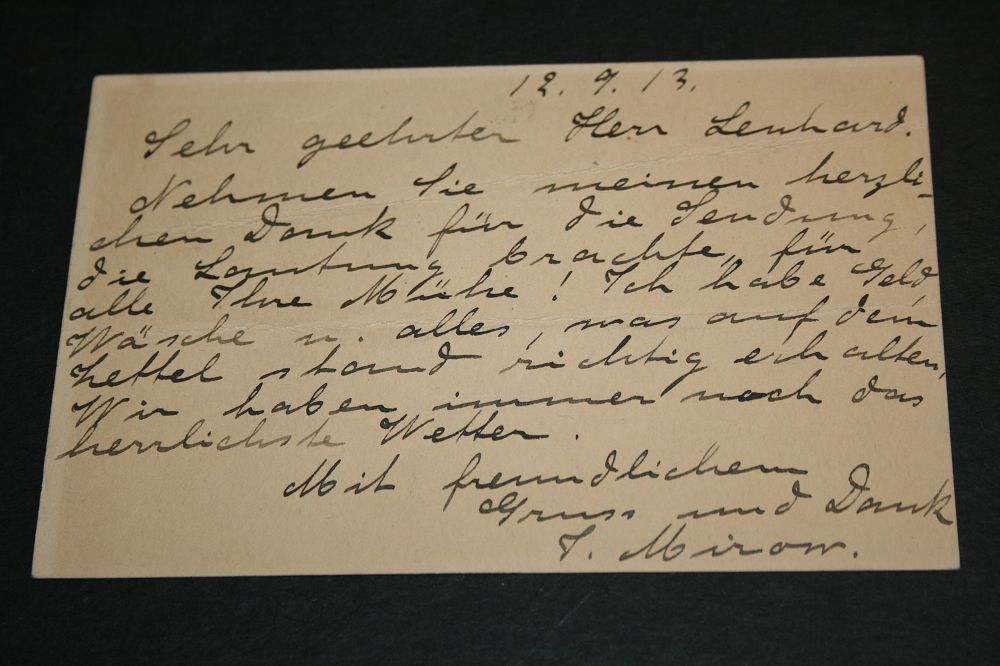 12. 9. 13.
Sehr geehrter Herr Lenhard.
Nehmen Sie meinen herzli-
chen Dank für die Sendung,
die brachte, für
alle Ihre Mühe! Ich habe Geld,
Wäsche u. alles, was auf dem
Zettel stand richtig erhalten,
Wir haben immer noch das
herrlichste Wetter.
Mit freundlichem
Gruss und Dank
J. Mirow.